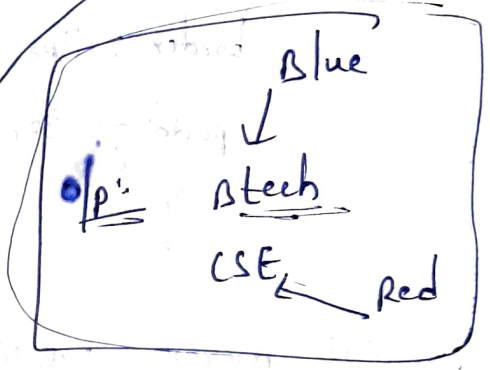 Blue
o/p:
Btech
CSE
Red